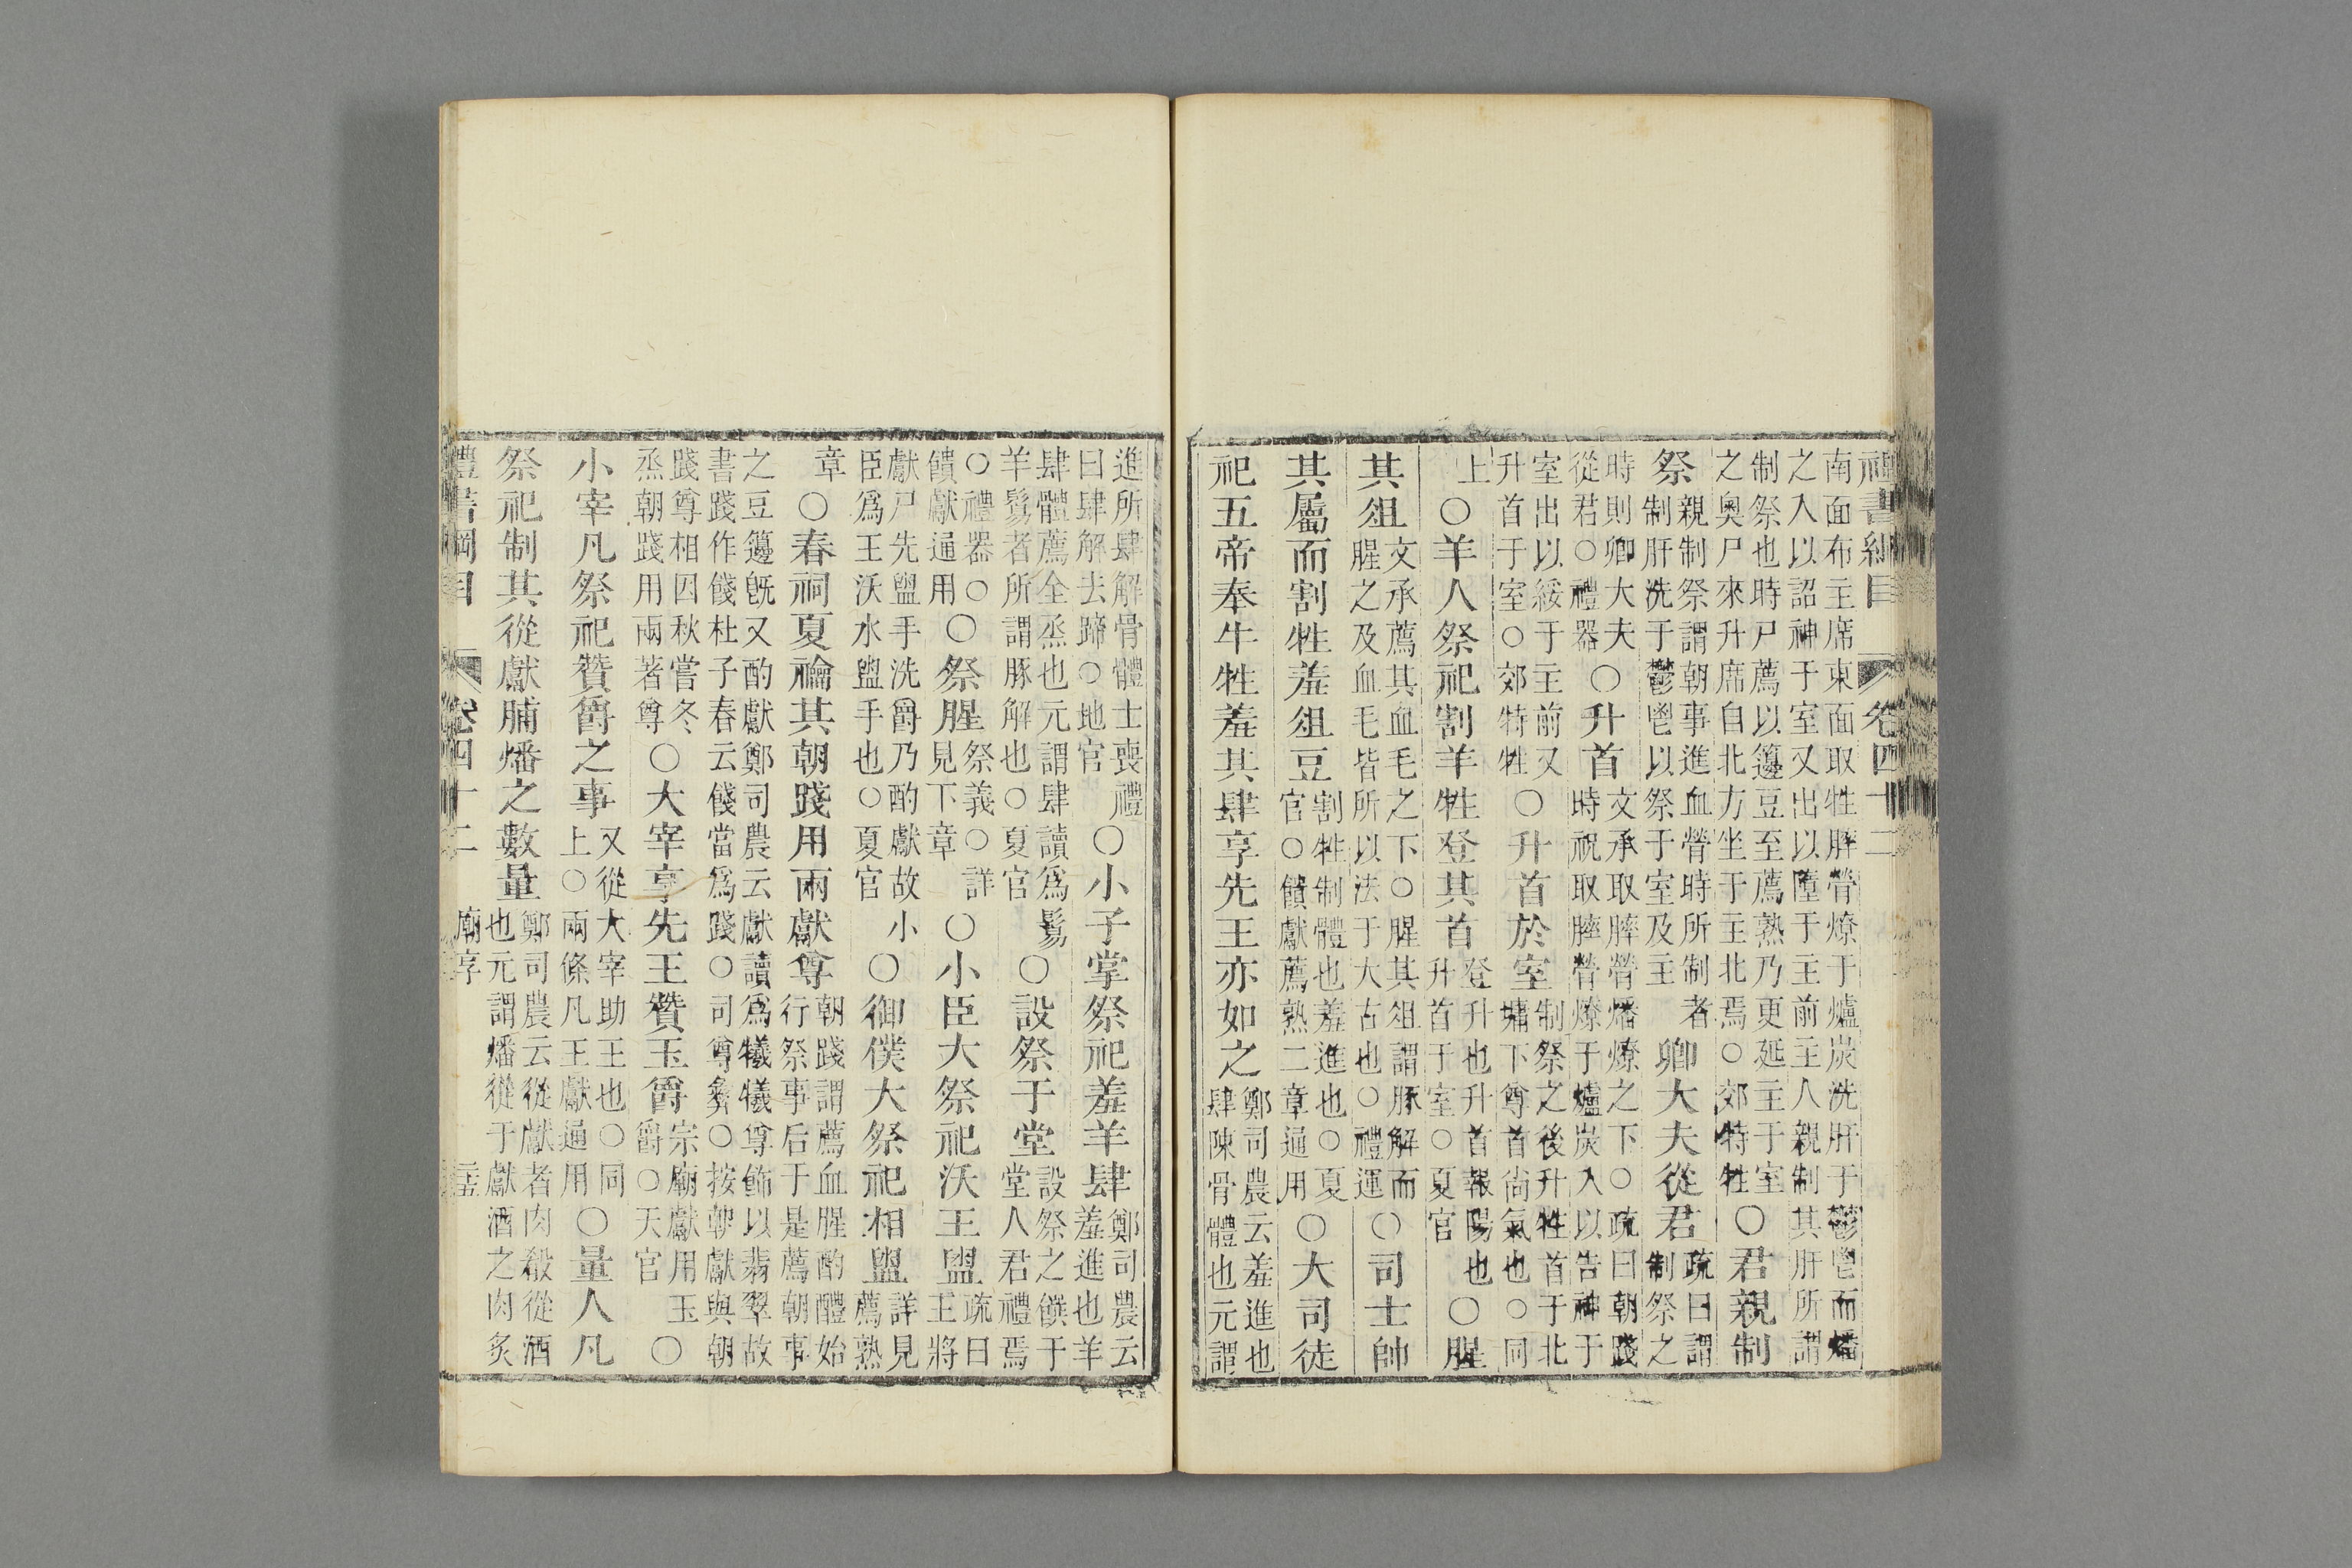 禮書綱目 卷四十二
南面布主席東面取牲膟膋燎于爐炭洗肝于鬱鬯而燔
之入以詔神于室又出以墮于主前主人親制其肝所謂
制祭也時尸薦以籩豆至薦熟乃更延主于室
之奧尸來升席自北方坐于主北焉○郊特牲○君親制
祭親制祭謂朝事進血膋時所制者
制肝洗于鬱鬯以祭于室及主卿大夫從君疏曰謂
制祭之
時則卿大夫
從君○禮器○升首文承取膟膋燔燎之下○疏曰朝踐
時祝取膟膋燎于爐炭入以告神于
室出以綏于主前又
升首于室○郊特牲○升首於室制祭之後升牲首于北
墉下尊首尙氣也○同
上○羊人祭祀割羊牲登其首登升也升首報陽也
升首于室○夏官○腥
其俎文承薦其血毛之下○腥其俎謂豚解而
腥之及血毛皆所以法于大古也○禮運○司士帥
其屬而割牲羞俎豆割牲制體也羞進也○夏
官○饋獻薦熟二章通用○大司徒
祀五帝奉牛牲羞其肆享先王亦如之鄭司農云羞進也
肆陳骨體也元謂
進所肆解骨體士喪禮
曰肆解去蹄○地官○小子掌祭祀羞羊肆鄭司農云
羞進也羊
肆體薦全烝也元謂肆讀爲鬄
羊鬄者所謂豚解也○夏官○設祭于堂設祭之饌于
堂人君禮焉
○禮器○
饋獻通用○祭腥祭義○詳
見下章○小臣大祭祀沃王盥疏曰
王將
獻尸先盥手洗爵乃酌獻故小
臣爲王沃水盥手也○夏官○御僕大祭祀相盥詳見
薦熟
章○春祠夏禴其朝踐用兩獻尊朝踐謂薦血腥酌醴始
行祭事后于是薦朝事
之豆籩旣又酌獻鄭司農云獻讀爲犧犧尊飾以翡翠故
書踐作餞杜子春云餞當爲踐○司尊彝○按朝獻與朝
踐尊相因秋嘗冬
烝朝踐用兩著尊○大宰享先王贊玉爵宗廟獻用玉
爵○天官○
小宰凡祭祀贊爵之事又從大宰助王也○同
上○兩條凡王獻通用○量人凡
祭祀制其從獻脯燔之數量鄭司農云從獻者肉殽從酒
也元謂燔從于獻酒之肉炙
禮書綱目 卷四十二 廟享